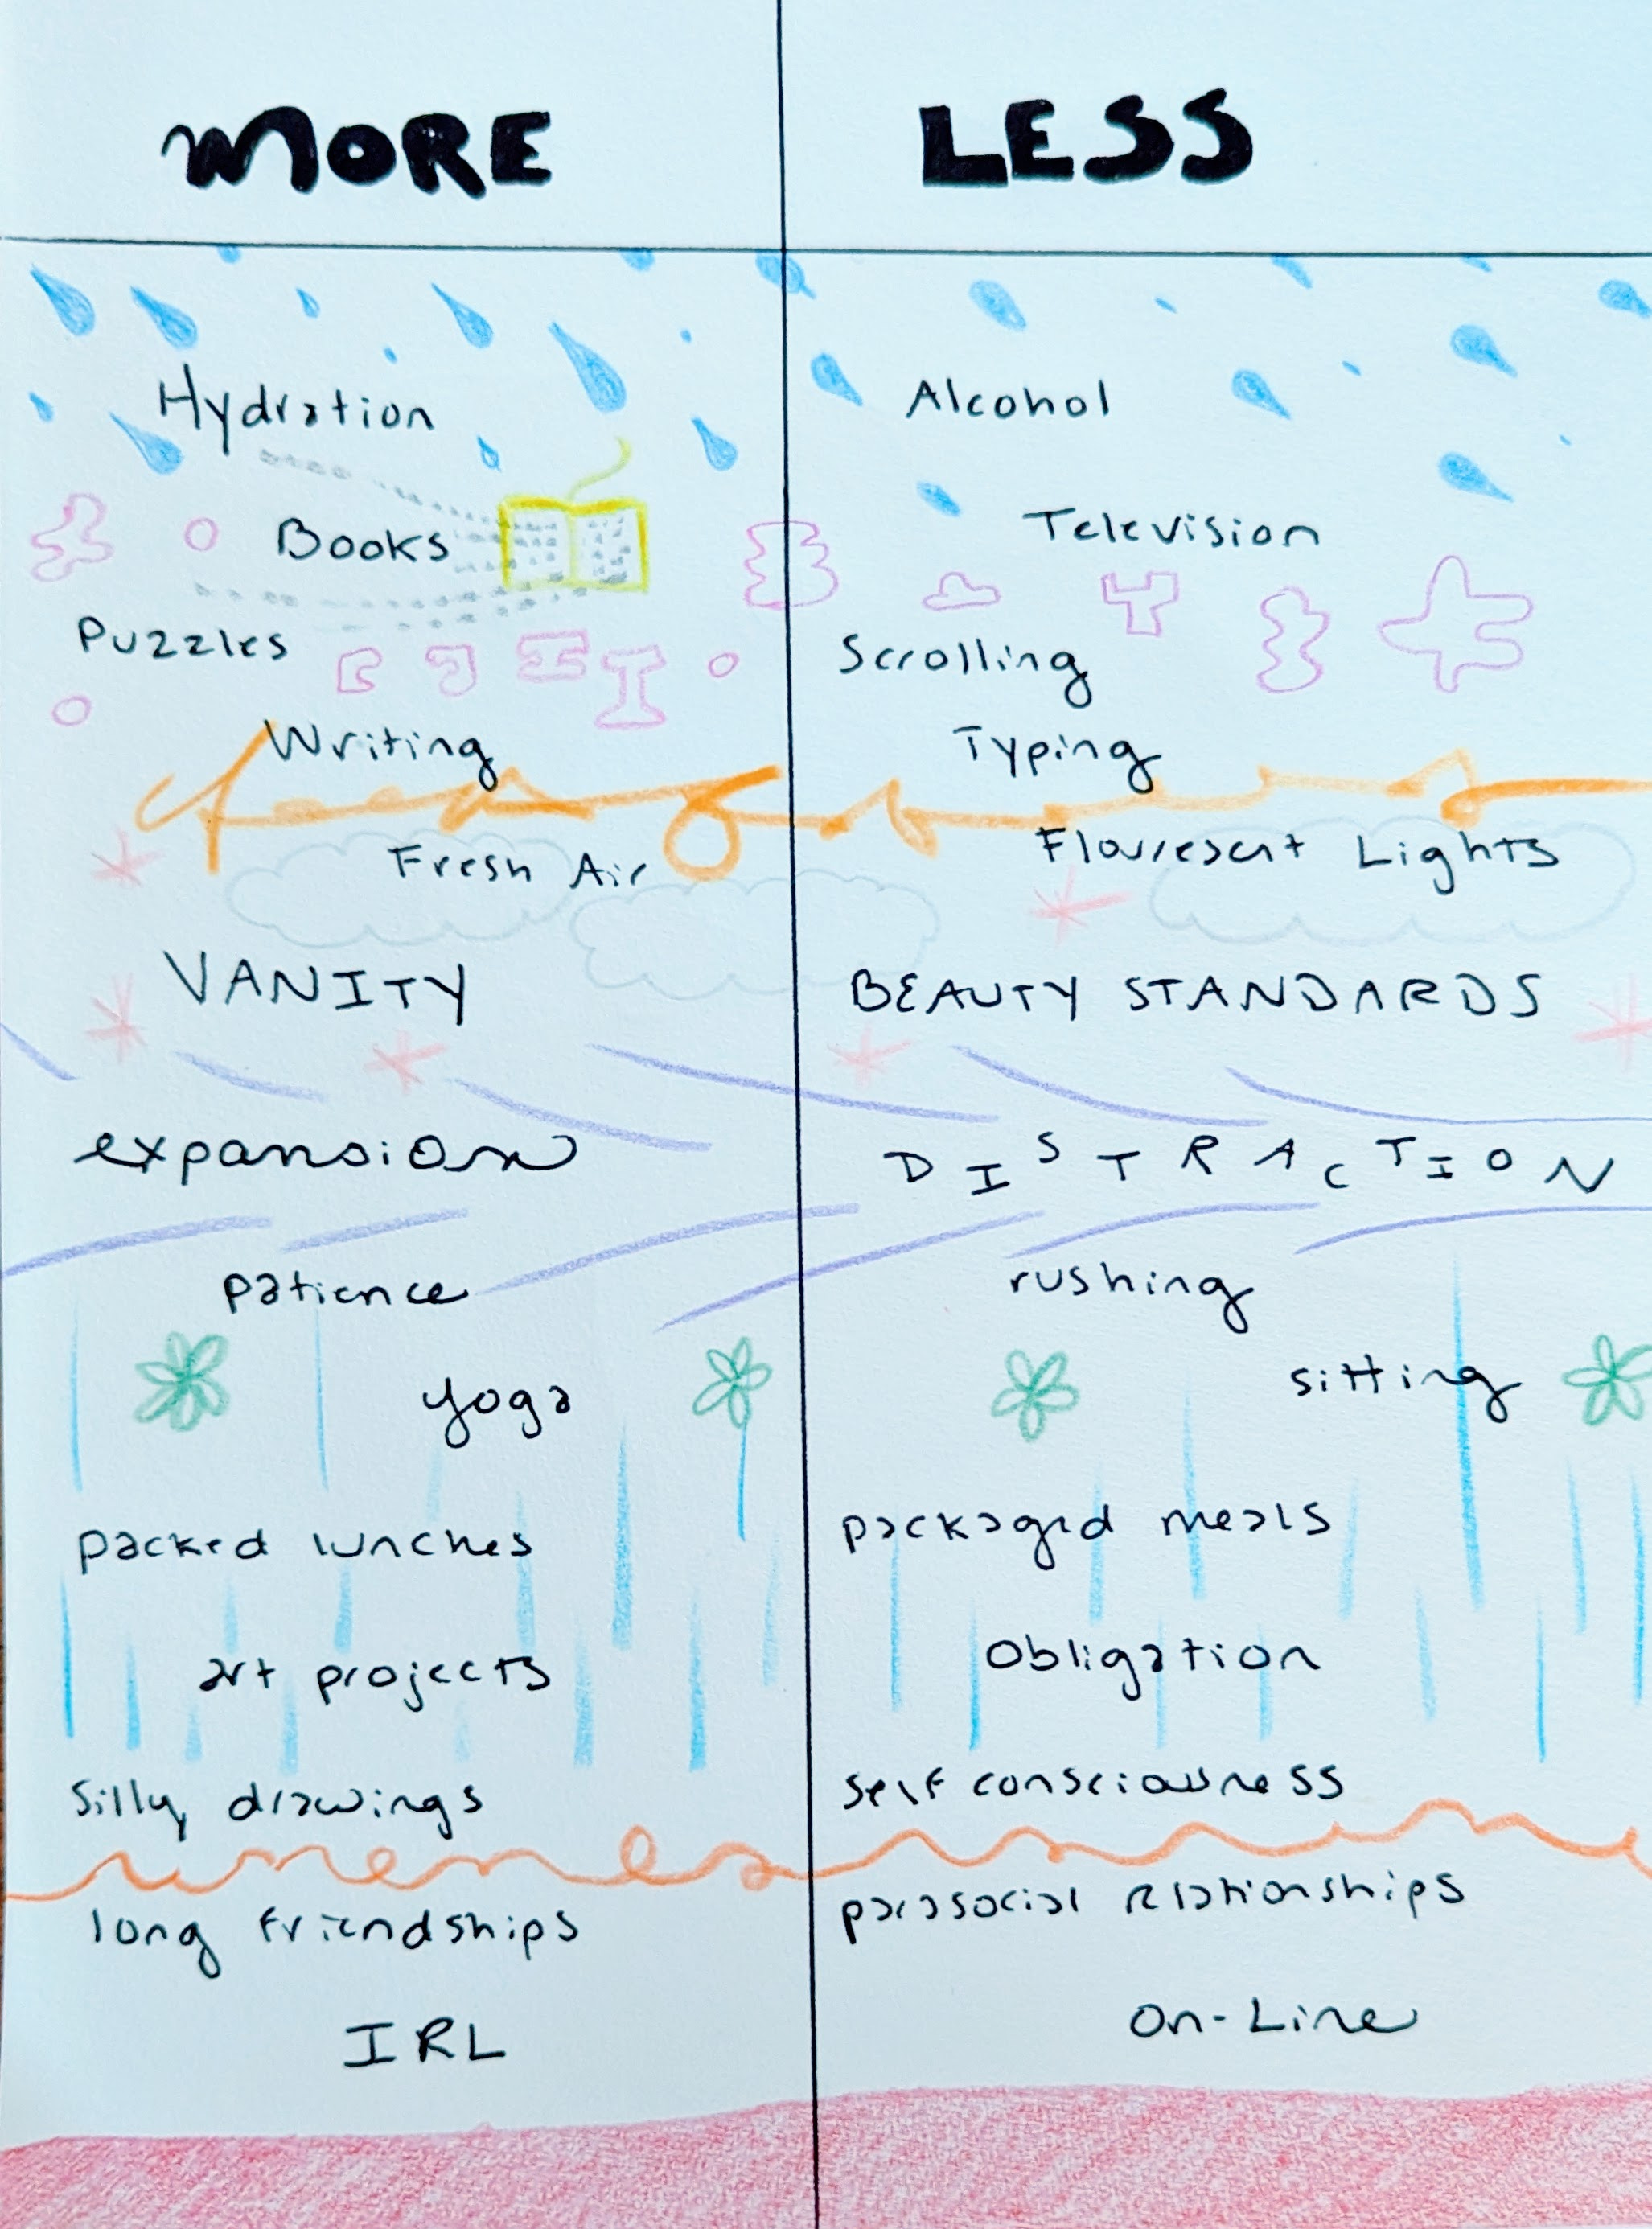 MORE
LESS
Hydration
Alcohol
Books
Television
Puzzles
Scrolling
Writing
Typing
Fresh Air
Flourescent Lights
VANITY
BEAUTY STANDARDS
expansion
DISTRACTION
patience
rushing
yoga
sitting
packed lunches
packaged meals
art projects
Obligation
Silly drawings
self consciousness
long friendships
parasocial relationships
IRL
On-Line